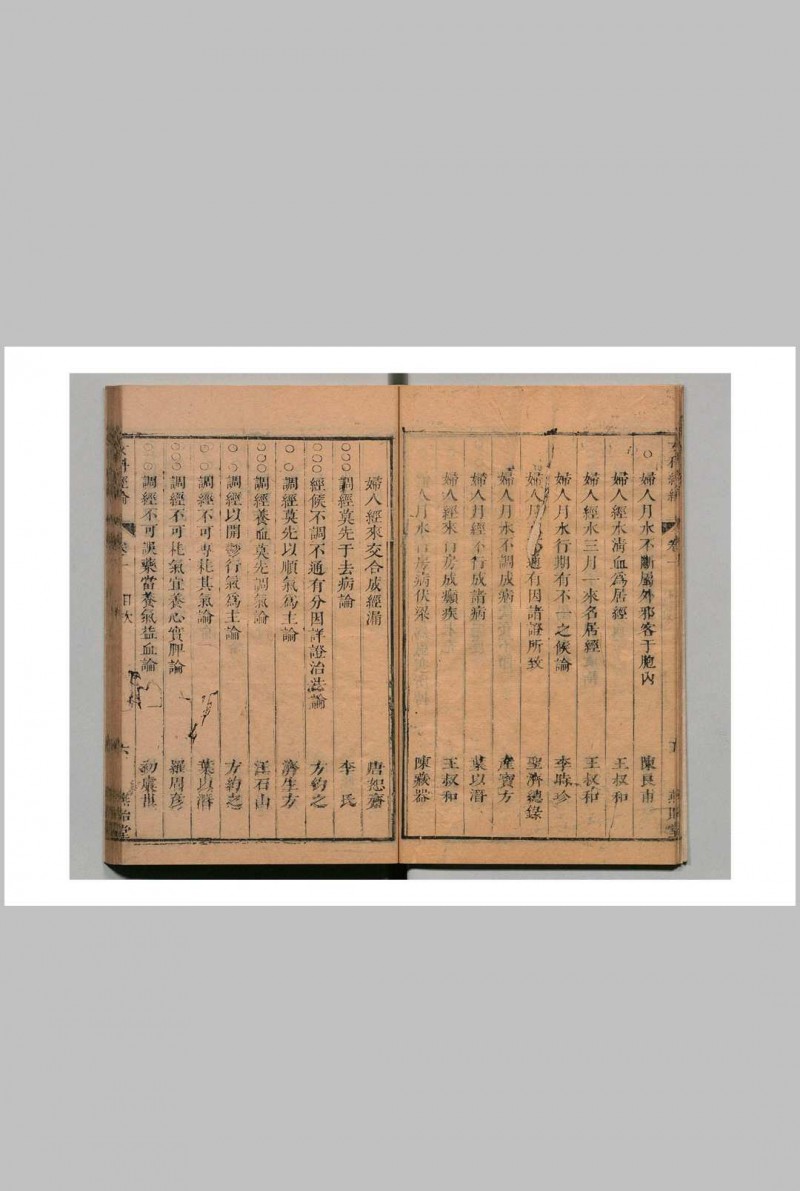 ○ 婦人月水不斷屬外邪客于胞內 陳良甫
婦人經水淸血爲居經 王叔和
婦人經水三月一來名居經 王叔和
婦人月水行期有不一之候論 李時珍
婦人月 通有因諸證所致 聖濟總錄
婦人月水不調成病 產寶方
婦人月經不行成諸病 葉以潛
婦人經來行房成癲疾 王叔和
人月水行房病伏梁 陳藏器
婦人經來交合成經漏 唐恕齋
○○○調經莫先于去病論 李氏
○○○經候不調不通有分因詳證治法論 方約之
○○調經莫先以順氣爲主論 濟生方
○○○調經養血莫先調氣論 汪石山
○○調經以開鬱行氣爲主論 方約之
○○調經不可專耗其氣論 葉以潛
○○○調經不可耗氣宜養心實脾論 羅周彥
○○○調經不可誤藥當養氣益血論 勿庵世
女科經論 卷一 目次 六